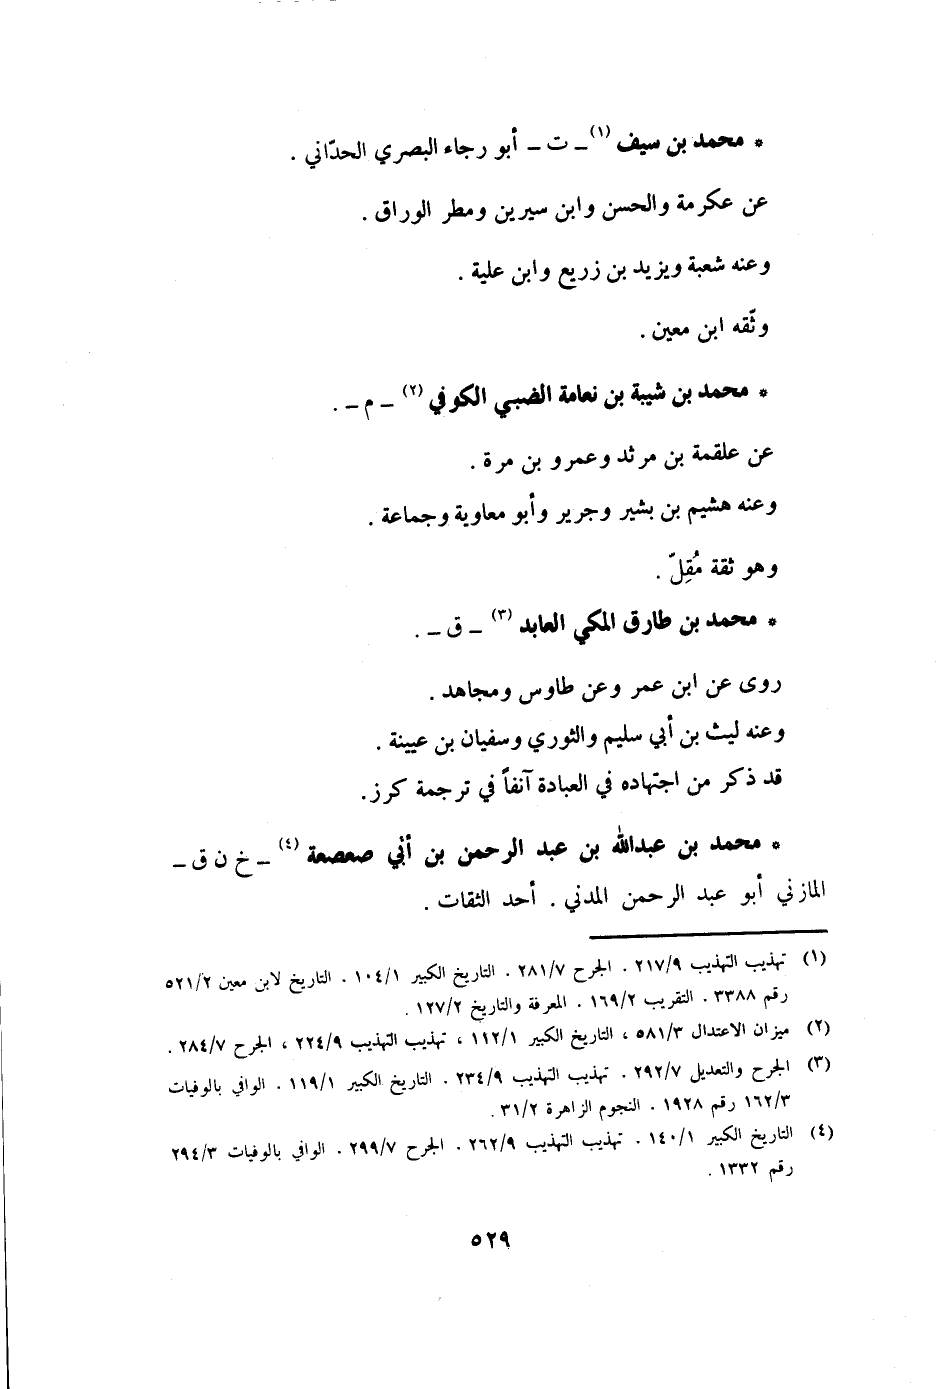 * محمد بن سيف (١) ــ ت ــ أبو رجاء البصري الحدّاني .
عن عكرمة والحسن وابن سيرين ومطر الوراق .
وعنه شعبة ويزيد بن زريع وابن علية .
وثّقه ابن معين .
* محمد بن شيبة بن نعامة الضبي الكوفي (٢) ــ م ــ .
عن علقمة بن مرثد وعمرو بن مرة .
وعنه هشيم بن بشير وجرير وأبو معاوية وجماعة .
وهو ثقة مُقِلّ .
* محمد بن طارق المكي العابد (٣) ــ ق ــ .
روى عن ابن عمر وعن طاوس ومجاهد .
وعنه ليث بن أبي سليم والثوري وسفيان بن عيينة .
قد ذكر من اجتهاده في العبادة آنفاً في ترجمة كرز .
* محمد بن عبدالله بن عبد الرحمن بن أبي صعصعة (٤) ــ خ ن ق ــ
المازني أبو عبد الرحمن المدني . أحد الثقات .
(١) تهذيب التهذيب ٢١٧/٩ . الجرح ٢٨١/٧ . التاريخ الكبير ١٠٤/١ . التاريخ لابن معين ٥٢١/٢
رقم ٣٣٨٨ . التقريب ١٦٩/٢ . المعرفة والتاريخ ١٢٧/٢ .
(٢) ميزان الاعتدال ٥٨١/٣ ، التاريخ الكبير ١١٢/١ ، تهذيب التهذيب ٢٢٤/٩ ، الجرح ٢٨٤/٧ .
(٣) الجرح والتعديل ٢٩٢/٧ . تهذيب التهذيب ٢٣٤/٩ . التاريخ الكبير ١١٩/١ . الوافي بالوفيات
١٦٢/٣ رقم ١٩٢٨ . النجوم الزاهرة ٣١/٢ .
(٤) التاريخ الكبير ١٤٠/١ . تهذيب التهذيب ٢٦٢/٩ . الجرح ٢٩٩/٧ . الوافي بالوفيات ٢٩٤/٣
رقم ١٣٣٢ .
٥٢٩